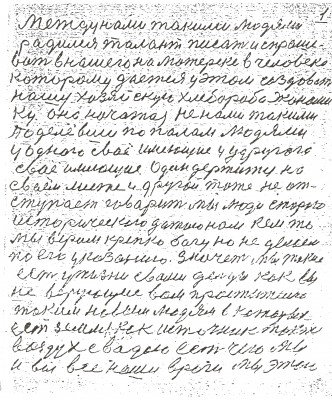 1
Между нами такими людями
родился талант писать и спраши
вать в нашего на матереке в человека
которому дается у этом создовать
нашу хозяйскую хлебороба Экономи
ку она начата не нами такими
поделевили по палам людями
у одного своё имеющие у другого
своё имеющие один держить на
своём месте и другой тоже не от-
ступает говарит мы люди старого
исторического дати нам кем то
мы верим крепко богу но не делаем
по его указанию. Значет мы такие
есть у жизни свами деды как вы
не верующие вам
таким новым людям в которых
есть земля как источник также
воздух с вадою есть чего мы
и вы все наши врачи мы этом